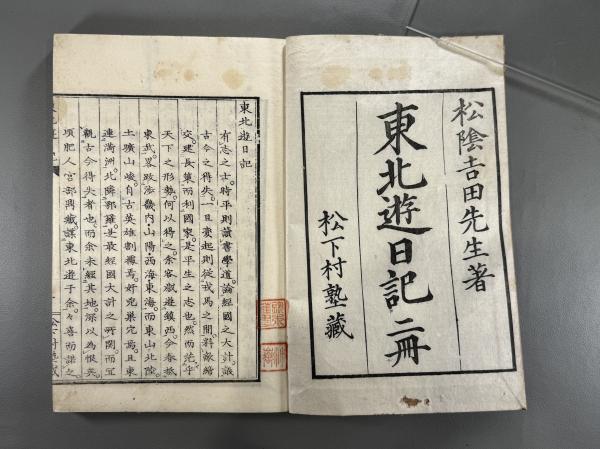 松陰吉田先生著
東北遊日記 二冊
松下村塾藏
東北遊日記
有志之士。時平則讀書學道。論經國之大計。議
古今之得失。一旦變起。則從戎馬之間。料敵締
交。建長策而利國家。是平生之志也。然而茫乎
天下之形勢。何以得之。余客歲遊鎮西。今春抵
東武。畧跋渉畿内山陽西海東海。而東山北陸
土曠山峻。自古英雄割據焉。奸兇巢穴焉。且東
連滿洲。北隣鄂羅。是最經國大計之所關。而宜
觀古今得失者也。而余未經其地。深以為恨矣。
頃肥人宮部鼎藏。謀東北遊于余。々喜而諾之。